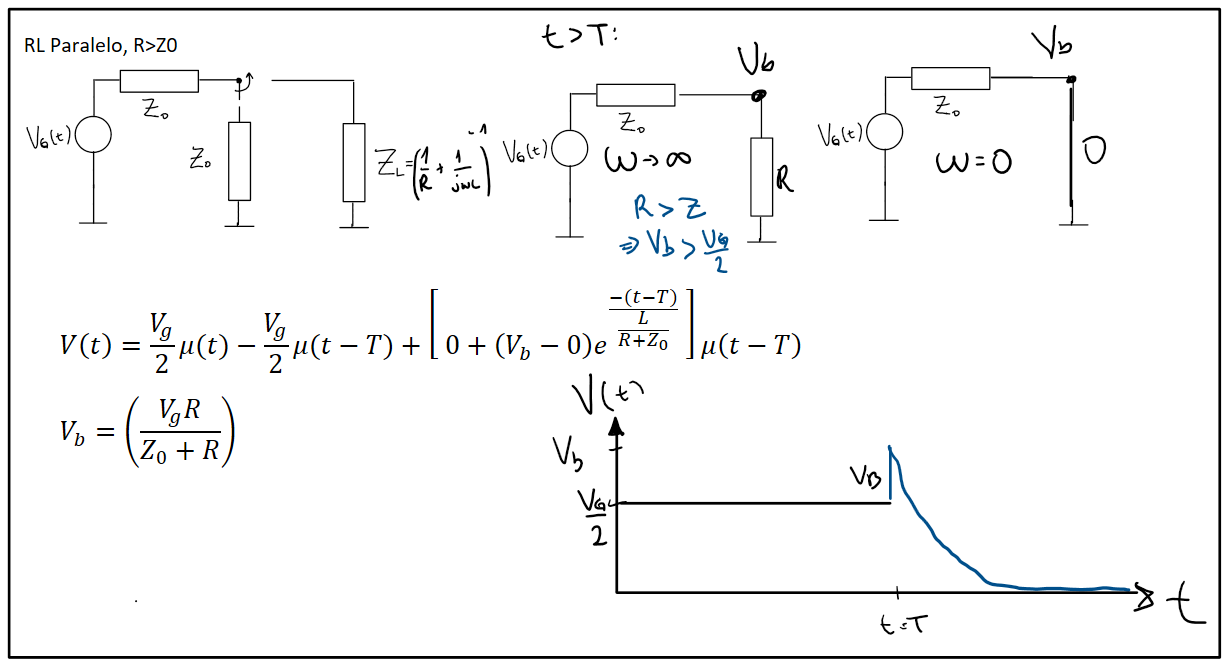 RL Paralelo, R>Z0
t>T:
V_G(t)
Z₀
Z₀
Z_L=(1/R + 1/jωL)⁻¹
V_b
V_G(t)
Z₀
ω→∞
R
R>Z
⇒V_b>V_G/2
V_b
V_G(t)
Z₀
ω=0
0
V(t) = V_g/2 μ(t) − V_g/2 μ(t − T) + [0 + (V_b − 0)e^(−(t−T)/(L/(R+Z₀)))] μ(t − T)
V_b = (V_g R/(Z₀ + R))
V(t)
V_b
V_B
V_G/2
t=T
t